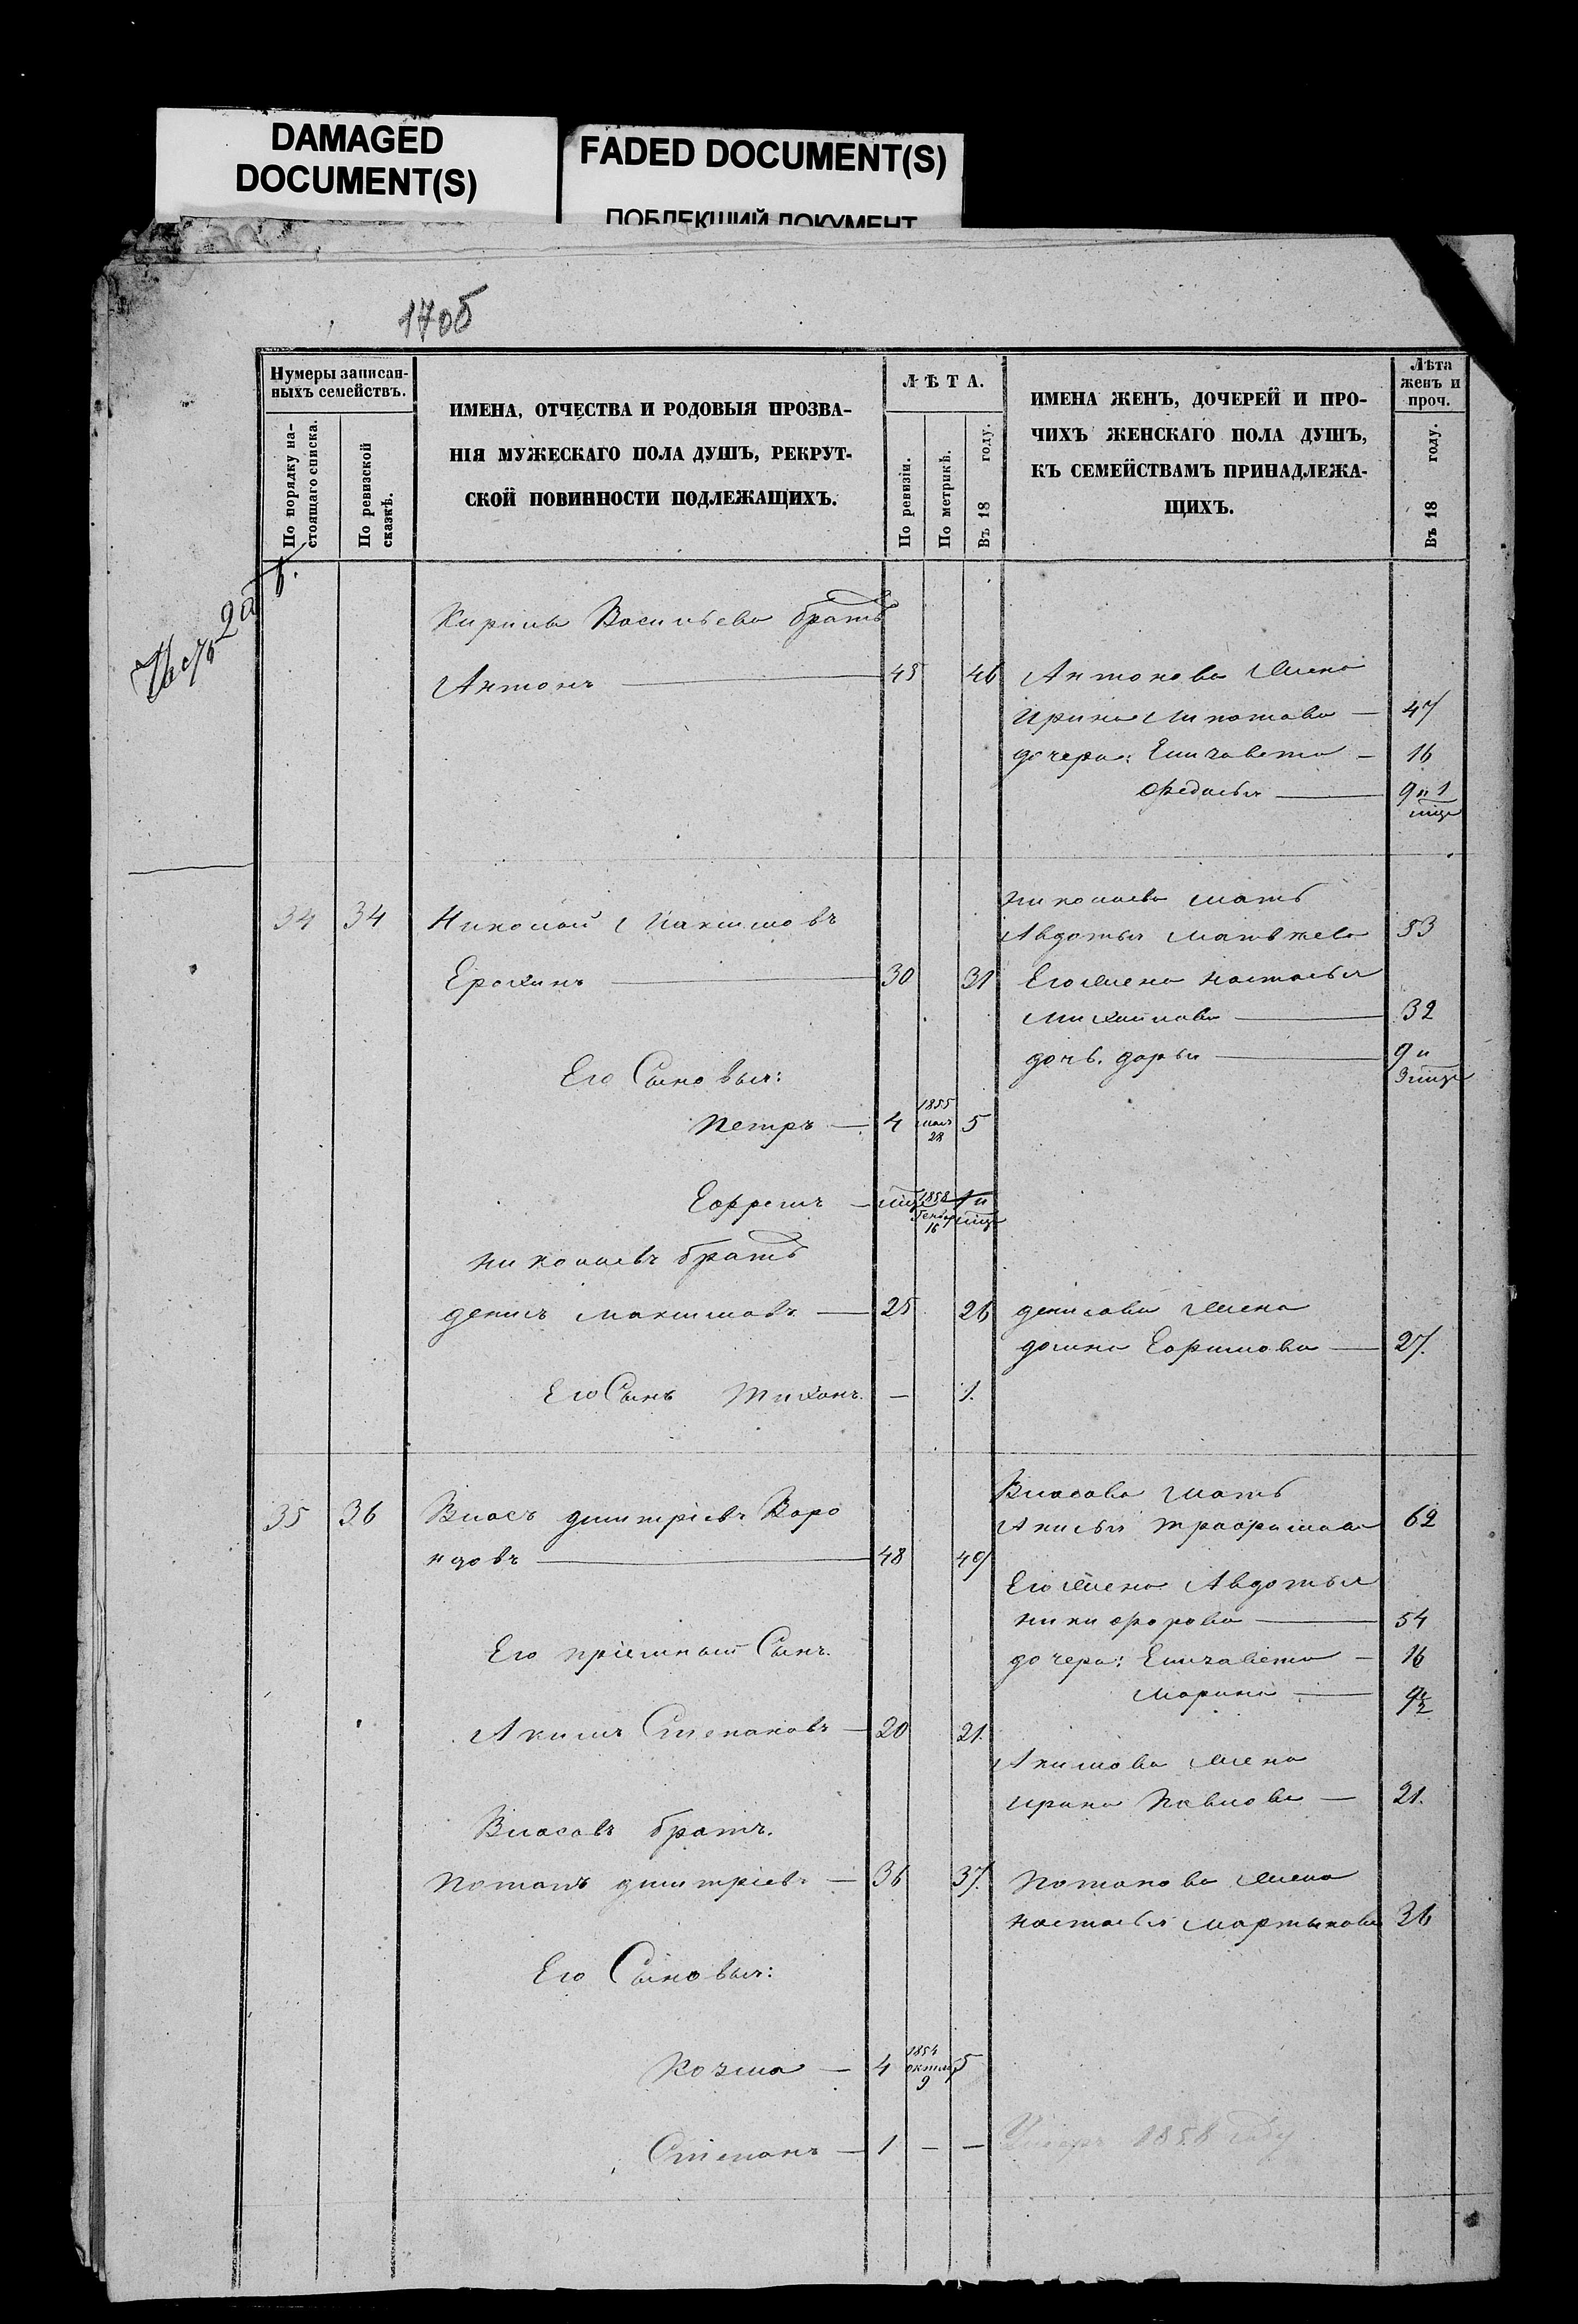 DAMAGED
DOCUMENT(S)
FADED DOCUMENT(S)
ПОБЛЕКШИЙ ДОКУМЕНТ
Нумеры записан-
ныхъ семействъ.
По порядку на-
стоящаго списка.
По ревизской
сказкѣ.
ИМЕНА, ОТЧЕСТВА И РОДОВЫЯ ПРОЗВА-
НІЯ МУЖЕСКАГО ПОЛА ДУШЪ, РЕКРУТ-
СКОЙ ПОВИННОСТИ ПОДЛЕЖАЩИХЪ.
ЛѢТА.
По ревизіи.
По метрикѣ.
Въ 18 году.
ИМЕНА ЖЕНЪ, ДОЧЕРЕЙ И ПРО-
ЧИХЪ ЖЕНСКАГО ПОЛА ДУШЪ,
КЪ СЕМЕЙСТВАМЪ ПРИНАДЛЕЖА-
ЩИХЪ.
Лѣта
женъ и
проч.
Въ 18 году.
Кирила Васильева братъ
Антонъ — 45 46 Антонова жена
Ирина Липатова — 47
дочери: Елизавета — 16
Федосья — 9 и 1
мѣц
Николаева мать
34 34 Николай Максимовъ
Авдотья Матвѣева 53
Ерохинъ — 30 31 Его жена Настасья
Михайлова — 32
дочь Дарья — 9 и
3 мѣц
Его Сыновья:
Петръ — 4 1855 мая 28 5
Ефремъ — мѣц 1858 Генвар 16 1 и мѣц
Николаевъ братъ
Денисъ Максимовъ — 25 26 Денисова жена
Домна Ефимова — 27.
Его Сынъ Тихонъ. — 1.
Власова мать
35 36 Власъ Дмитріевъ Воро
Анисья Трофимова 62
ндовъ — 48 49
Его жена Авдотья
Никифорова — 54
Его пріемный Сынъ.
дочери: Елизавета — 16
Марина — 9½
Акимъ Степановъ — 20 21.
Акимова жена
Ирина Павлова — 21.
Власовъ братъ.
Потапъ Дмитріевъ — 36 37. Потапова жена
Настасья Мартынова 36
Его Сыновья:
Козма — 4 1854 октяб 9 5
Степанъ — 1 — — Умеръ 1858 году